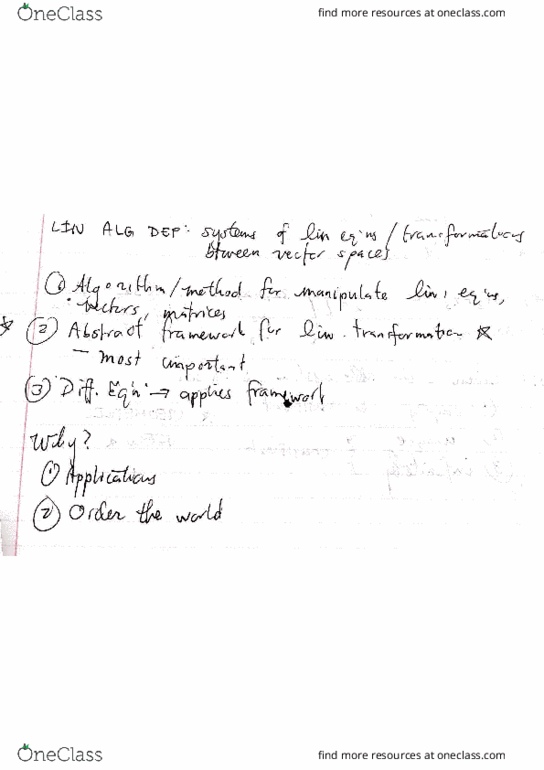 OneClass
find more resources at oneclass.com
LIN ALG DEF: systems of lin eq'ns / transformations
btween vector spaces
① Algorithm/method for manipulate lin. eq'ns,
vectors, matrices
☆ ② Abstract framework for lin. transformation ☆
— most important
③ Diff. Eq'n → applies framework
Why?
① Applications
② Order the world
OneClass
find more resources at oneclass.com